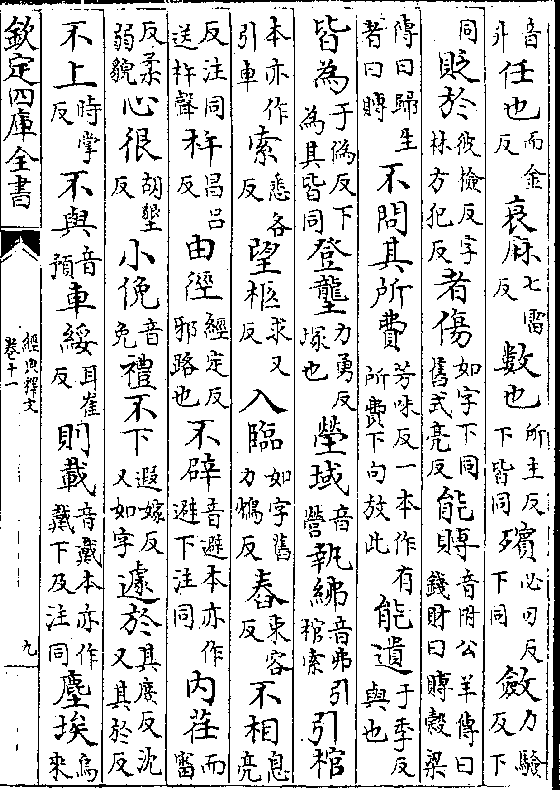 音升任也而金反衰麻七雷反數也所主反下皆同殯必刃反下同斂力驗反下
同貶於彼檢反字林方犯反者傷如字下同舊式亮反能賻音附公羊傳曰錢財曰賻穀梁
傳曰歸生者曰賻不問其所費芳味反一本作有所費下句放此能遺于季反與也
皆為于偽反下為其皆同登壟力勇反塚也塋域音營執紼音弗引棺索引棺
本亦作引車索悉各反望柩求又反入臨如字舊力鴆反舂束容反不相息亮
反注同送杵聲杵昌呂反由徑經定反邪路也不辟音避本亦作避下注同内荏而審
反柔弱貌心很胡墾反小俛音免禮不下遐嫁反又如字遽於其庶反沈又其於反
不上時掌反不與音預車綏耳崔反則載音戴本亦作戴下及注同塵埃烏來
欽定四庫全書
經典釋文
卷十一
九